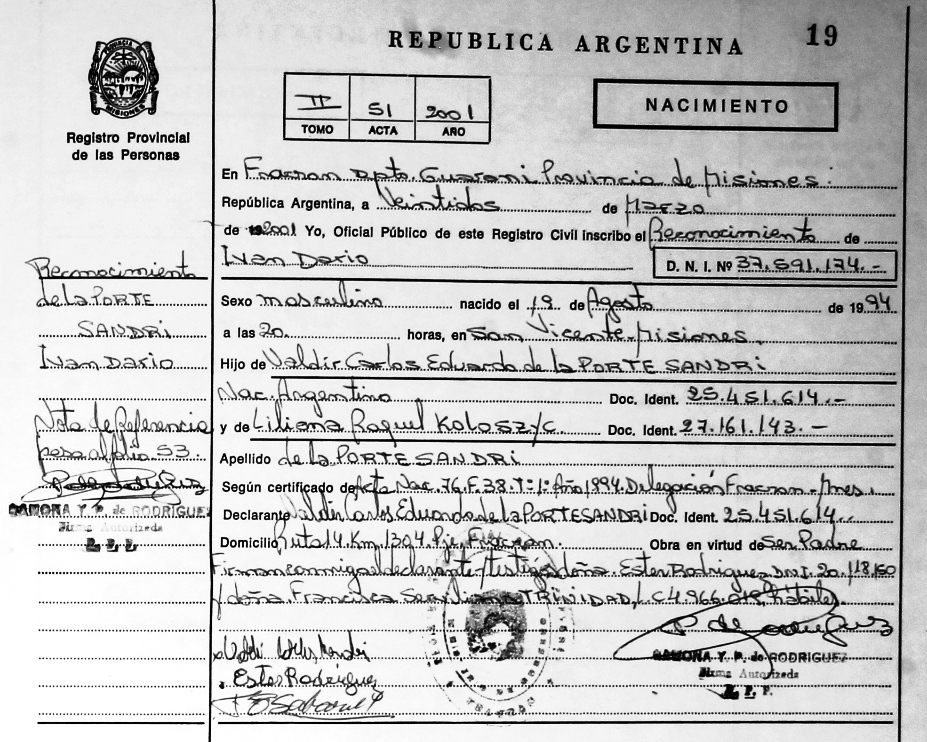 REPUBLICA ARGENTINA
19
PROVINCIA DE MISIONES
Registro Provincial
de las Personas
II 51 2001
TOMO ACTA AÑO
NACIMIENTO
En Fracran Dpto. Guarani Provincia de Misiones.
República Argentina, a Veintidos de Marzo
de 2001 Yo, Oficial Público de este Registro Civil inscribo el Reconocimiento de
Ivan Dario D. N. I. Nº 37.591.174.-
Sexo masculino nacido el 19 de Agosto de 1994
a las 20 horas, en San Vicente Misiones.
Hijo de Valdir Carlos Eduardo de la PORTE SANDRi
Nac. Argentino Doc. Ident. 25.451.614.-
y de Liliana Raquel Koloszyc. Doc. Ident. 27.161.143.-
Apellido de la PORTE SANDRi
Según certificado de Acta Nac. 76. F. 38. T: 1: Año 1994. Delegación Fracran - Mnes.
Declarante Valdir Carlos Eduardo de la PORTE SANDRi Doc. Ident. 25.451.614.-
Domicilio Ruta 14. Km. 1304. Pje. Fracran. Obra en virtud de Ser Padre
Firman conmigo el declarante testigos doña. Ester Rodriguez DNI. 20.
doña. Francisca TRINIDAD, L.C 4.966. hábiles.
Reconocimiento
de la PORTE
SANDRi
Ivan Dario
Nota de Referencia
pasa al folio 53
RAMONA Y. P. de RODRIGUEZ
Firma Autorizada
Ester Rodriguez
P de Rodriguez
RAMONA Y. P. de RODRIGUEZ
Firma Autorizada